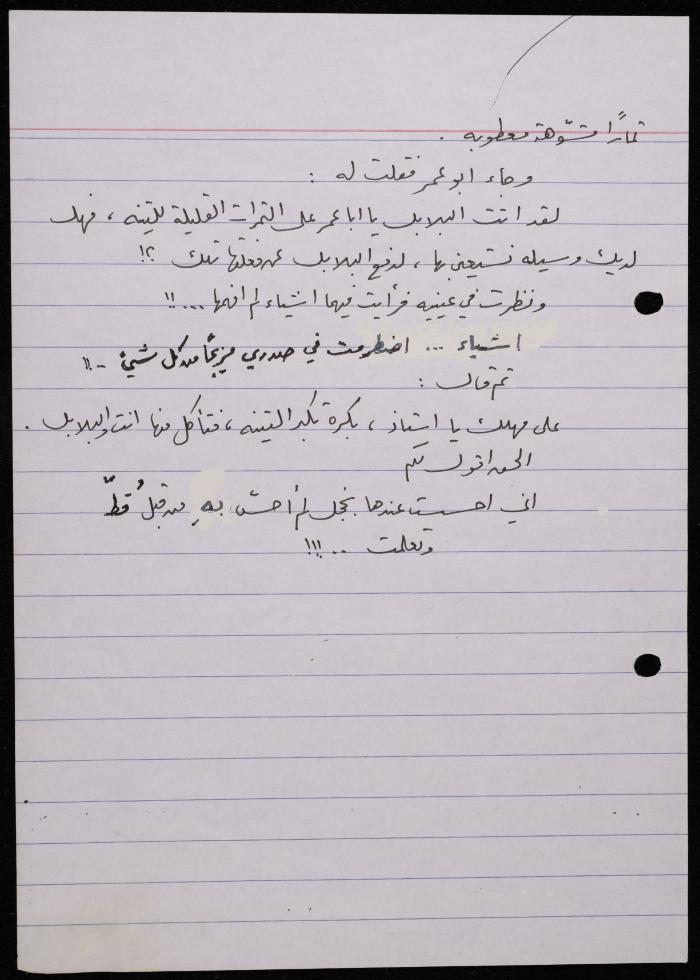 ثمارًا مشوّهة معطوبه .
وجاء ابو عمر فقلت له :
لقد اتت البلابل يا ابا عمر على الثمرات القليلة للتينه ، فهل
لديك وسيله نستعين بها ، لدفع البلابل عن فعلتها تلك ؟!
ونظرت في عينيه فرأيت فيهما اشياء لم افهمها ...!!
اشياء ... اضطرمت في صدري مزيجًا من كل شيئ ..!!
ثم قال :
على مهلك يا استاذ ، بكرة تكبر التينه ، فتأكل منها انت والبلابل .
الحق اقول لكم
اني احسست عندها بخجل لم أحسّ بهِ من قبلُ قطّ
وتعلمت ..!!!